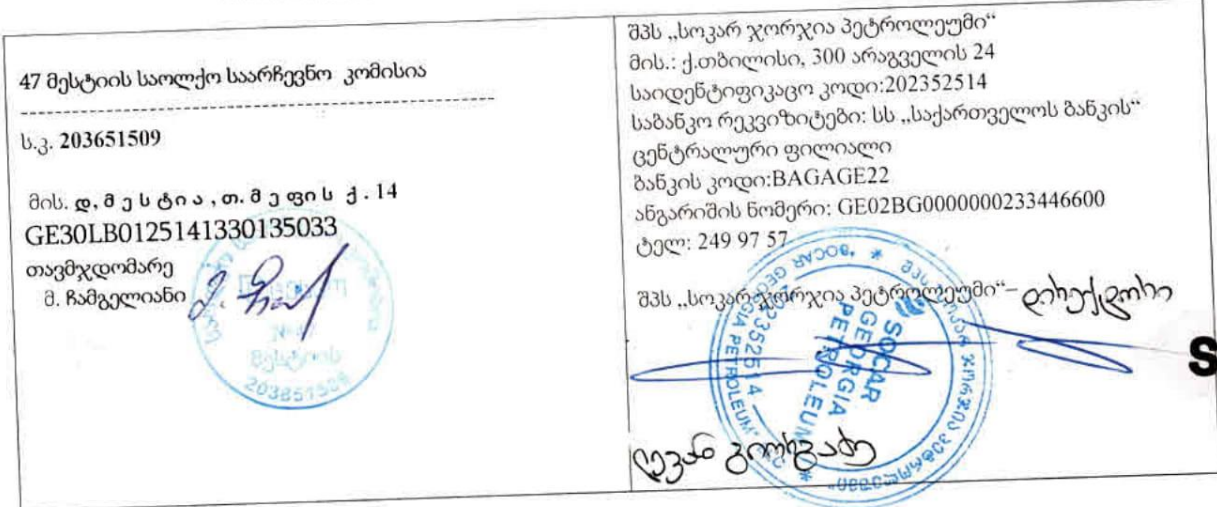 47 მესტიის საოლქო საარჩევნო კომისია
ს.კ. 203651509
მის. დ, მ ე ს ტ ი ა , თ. მ ე ფ ი ს ქ . 14
GE30LB0125141330135033
თავმჯდომარე
მ. ჩამგელიანი
№ 47
მესტიის
შპს „სოკარ ჯორჯია პეტროლეუმი“
მის.: ქ.თბილისი, 300 არაგველის 24
საიდენტიფიკაცო კოდი:202352514
საბანკო რეკვიზიტები: სს „საქართველოს ბანკის“
ცენტრალური ფილიალი
ბანკის კოდი:BAGAGE22
ანგარიშის ნომერი: GE02BG0000000233446600
ტელ: 249 97 57
შპს „სოკარ ჯორჯია პეტროლეუმი“– დირექტორი
SOCAR
GEORGIA
PETROLEUM
"SOCAR GEORGIA PETROLEUM"
202352514
S
ლევან